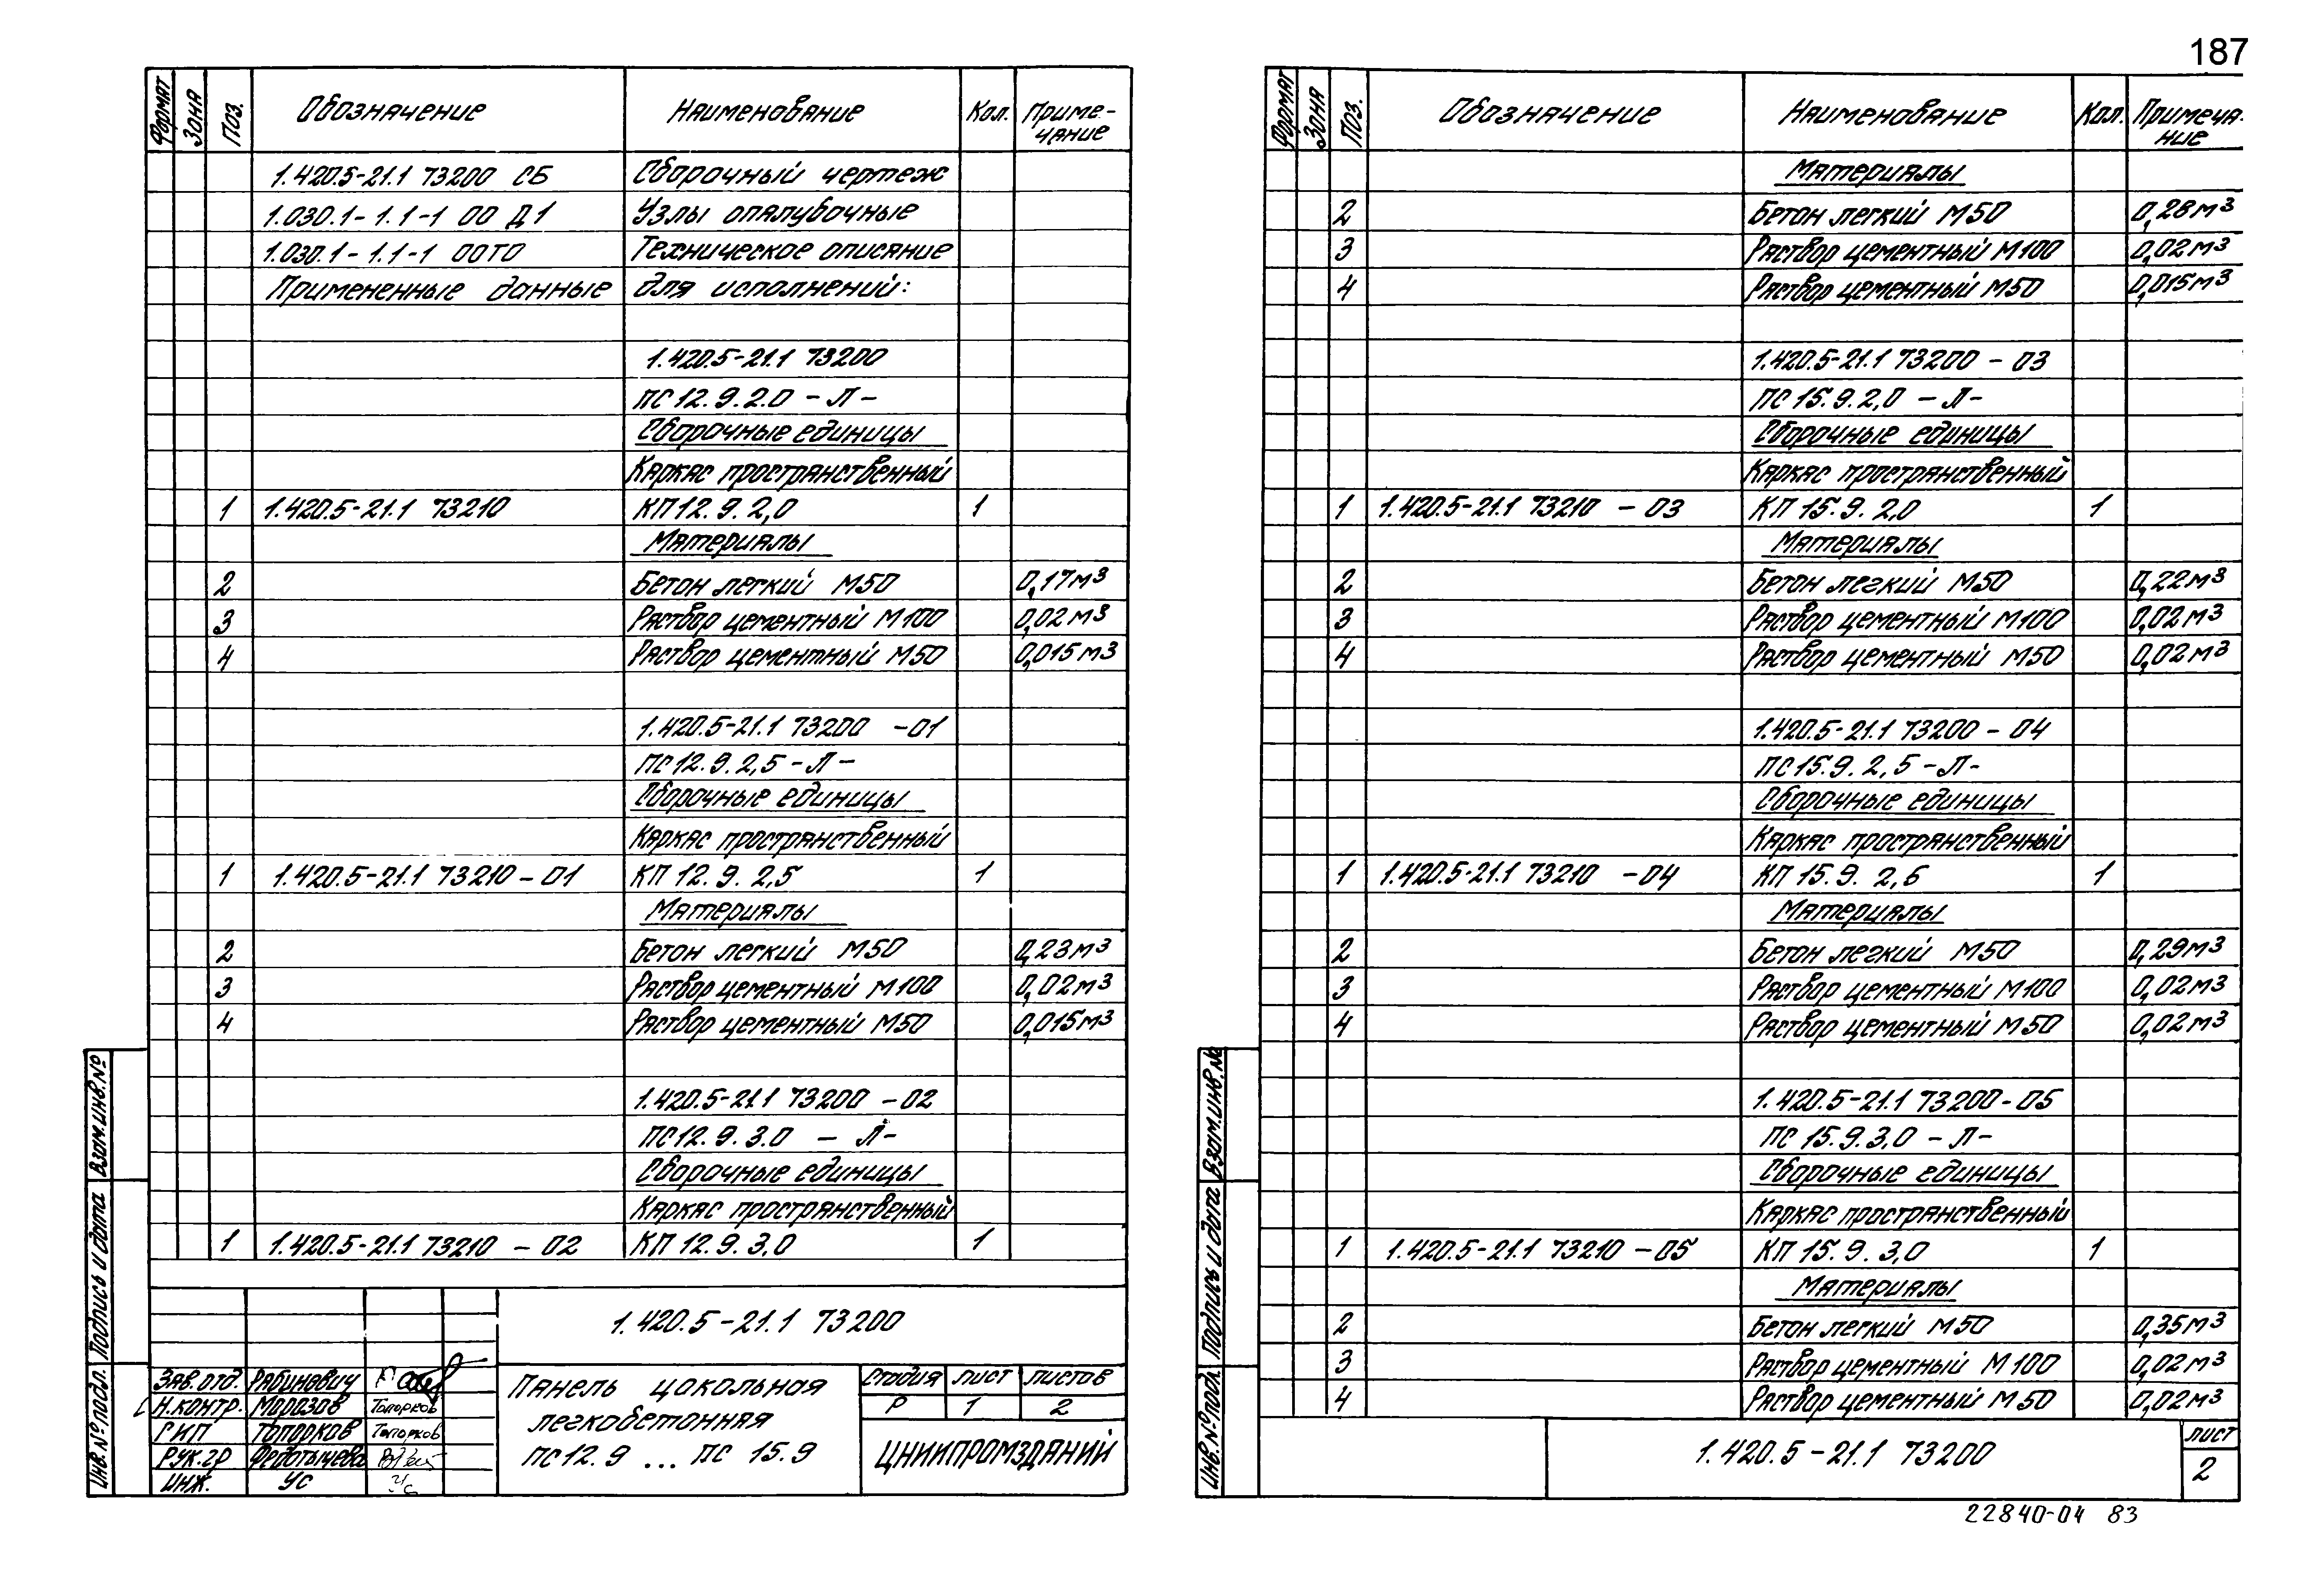 187
Формат Зона Поз. Обозначение Наименование Кол. Приме-чание
1.420.5-21.1 73200 СБ Сборочный чертеж
1.030.1-1.1-1 00 Д1 Узлы опалубочные
1.030.1-1.1-1 00ТО Техническое описание
Примененные данные для исполнений:
1.420.5-21.1 73200
ПС 12.9.2.0 - Л -
Сборочные единицы
Каркас пространственный
1 1.420.5-21.1 73210 КП 12.9.2,0 1
Материалы
2 Бетон легкий М50 0,17 м3
3 Раствор цементный М100 0,02 м3
4 Раствор цементный М50 0,015 м3
1.420.5-21.1 73200 -01
ПС 12.9.2,5 - Л -
Сборочные единицы
Каркас пространственный
1 1.420.5-21.1 73210 - 01 КП 12.9.2,5 1
Материалы
2 Бетон легкий М50 0,23 м3
3 Раствор цементный М100 0,02 м3
4 Раствор цементный М50 0,015 м3
1.420.5-21.1 73200 - 02
ПС 12.9.3.0 - Л -
Сборочные единицы
Каркас пространственный
1 1.420.5-21.1 73210 - 02 КП 12.9.3,0 1
Взам.инв.№
Подпись и дата
Инв.№ подл.
1.420.5-21.1 73200
Зав.отд. Рабинович
Н.контр. Морозов Топорков
ГИП Топорков Топорков
Рук.гр Федотычева
Инж. Ус
Панель цокольная
легкобетонная
ПС 12.9 ... ПС 15.9
Стадия Лист Листов
Р 1 2
ЦНИИПРОМЗДАНИЙ
Формат Зона Поз. Обозначение Наименование Кол. Примеча-ние
Материалы
2 Бетон легкий М50 0,28 м3
3 Раствор цементный М100 0,02 м3
4 Раствор цементный М50 0,015 м3
1.420.5-21.1 73200 - 03
ПС 15.9.2,0 - Л -
Сборочные единицы
Каркас пространственный
1 1.420.5-21.1 73210 - 03 КП 15.9.2,0 1
Материалы
2 Бетон легкий М50 0,22 м3
3 Раствор цементный М100 0,02 м3
4 Раствор цементный М50 0,02 м3
1.420.5-21.1 73200 - 04
ПС 15.9.2,5 - Л -
Сборочные единицы
Каркас пространственный
1 1.420.5-21.1 73210 - 04 КП 15.9.2,6 1
Материалы
2 Бетон легкий М50 0,29 м3
3 Раствор цементный М100 0,02 м3
4 Раствор цементный М50 0,02 м3
1.420.5-21.1 73200 - 05
ПС 15.9.3,0 - Л -
Сборочные единицы
Каркас пространственный
1 1.420.5-21.1 73210 - 05 КП 15.9.3,0 1
Материалы
2 Бетон легкий М50 0,35 м3
3 Раствор цементный М100 0,02 м3
4 Раствор цементный М50 0,02 м3
Взам.инв.№
Подпись и дата
Инв.№ подл.
1.420.5-21.1 73200
Лист
2
22840-04 83